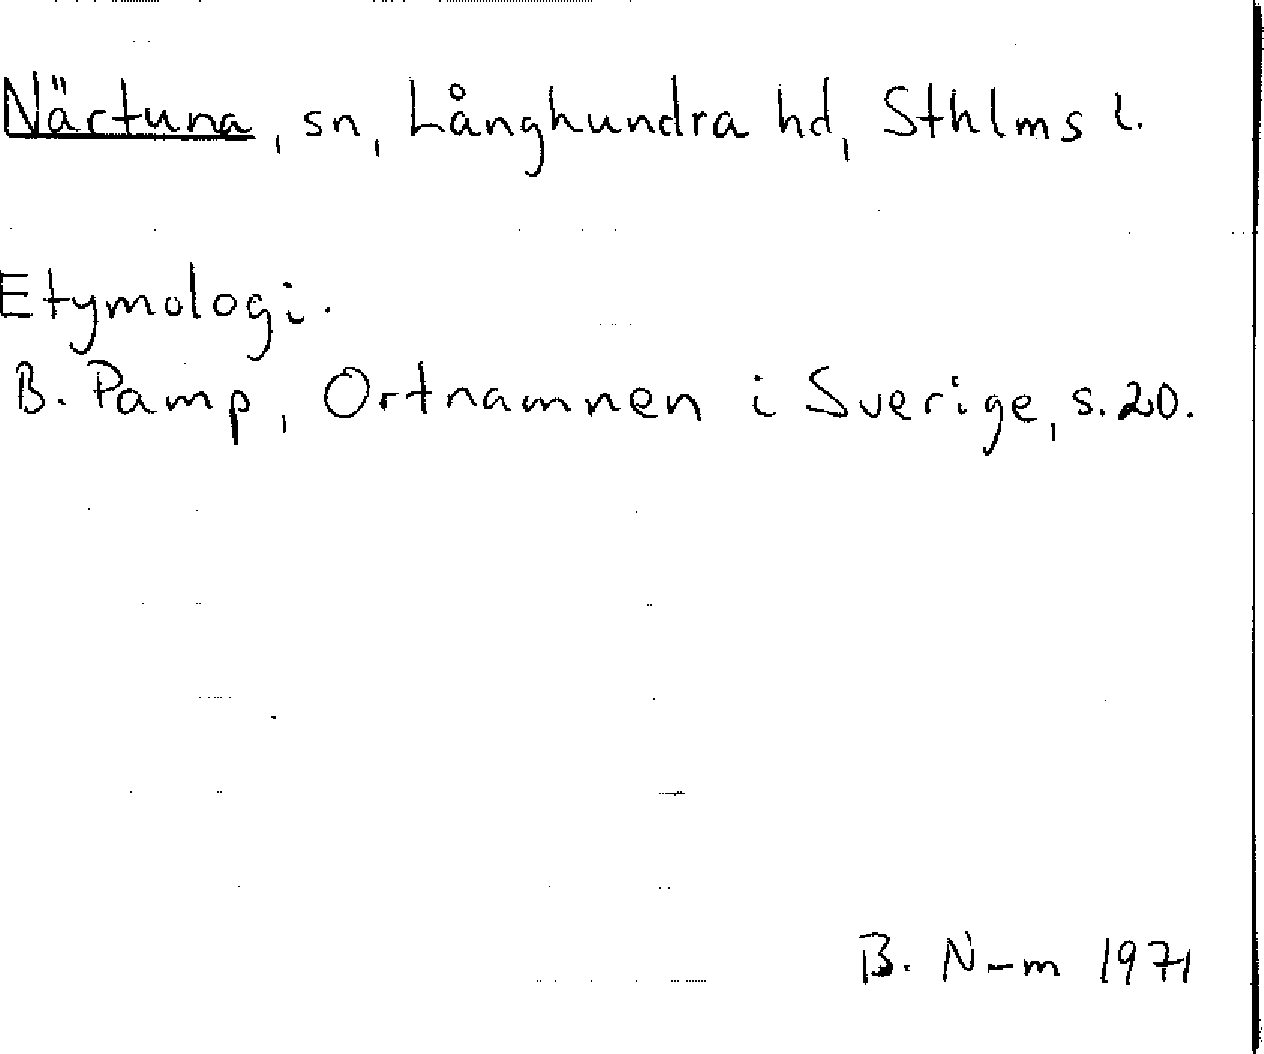 Närtuna, sn, Långhundra hd, Sthlms l.
Etymologi.
B. Pamp, Ortnamnen i Sverige, s. 20.
B. N-m 1971